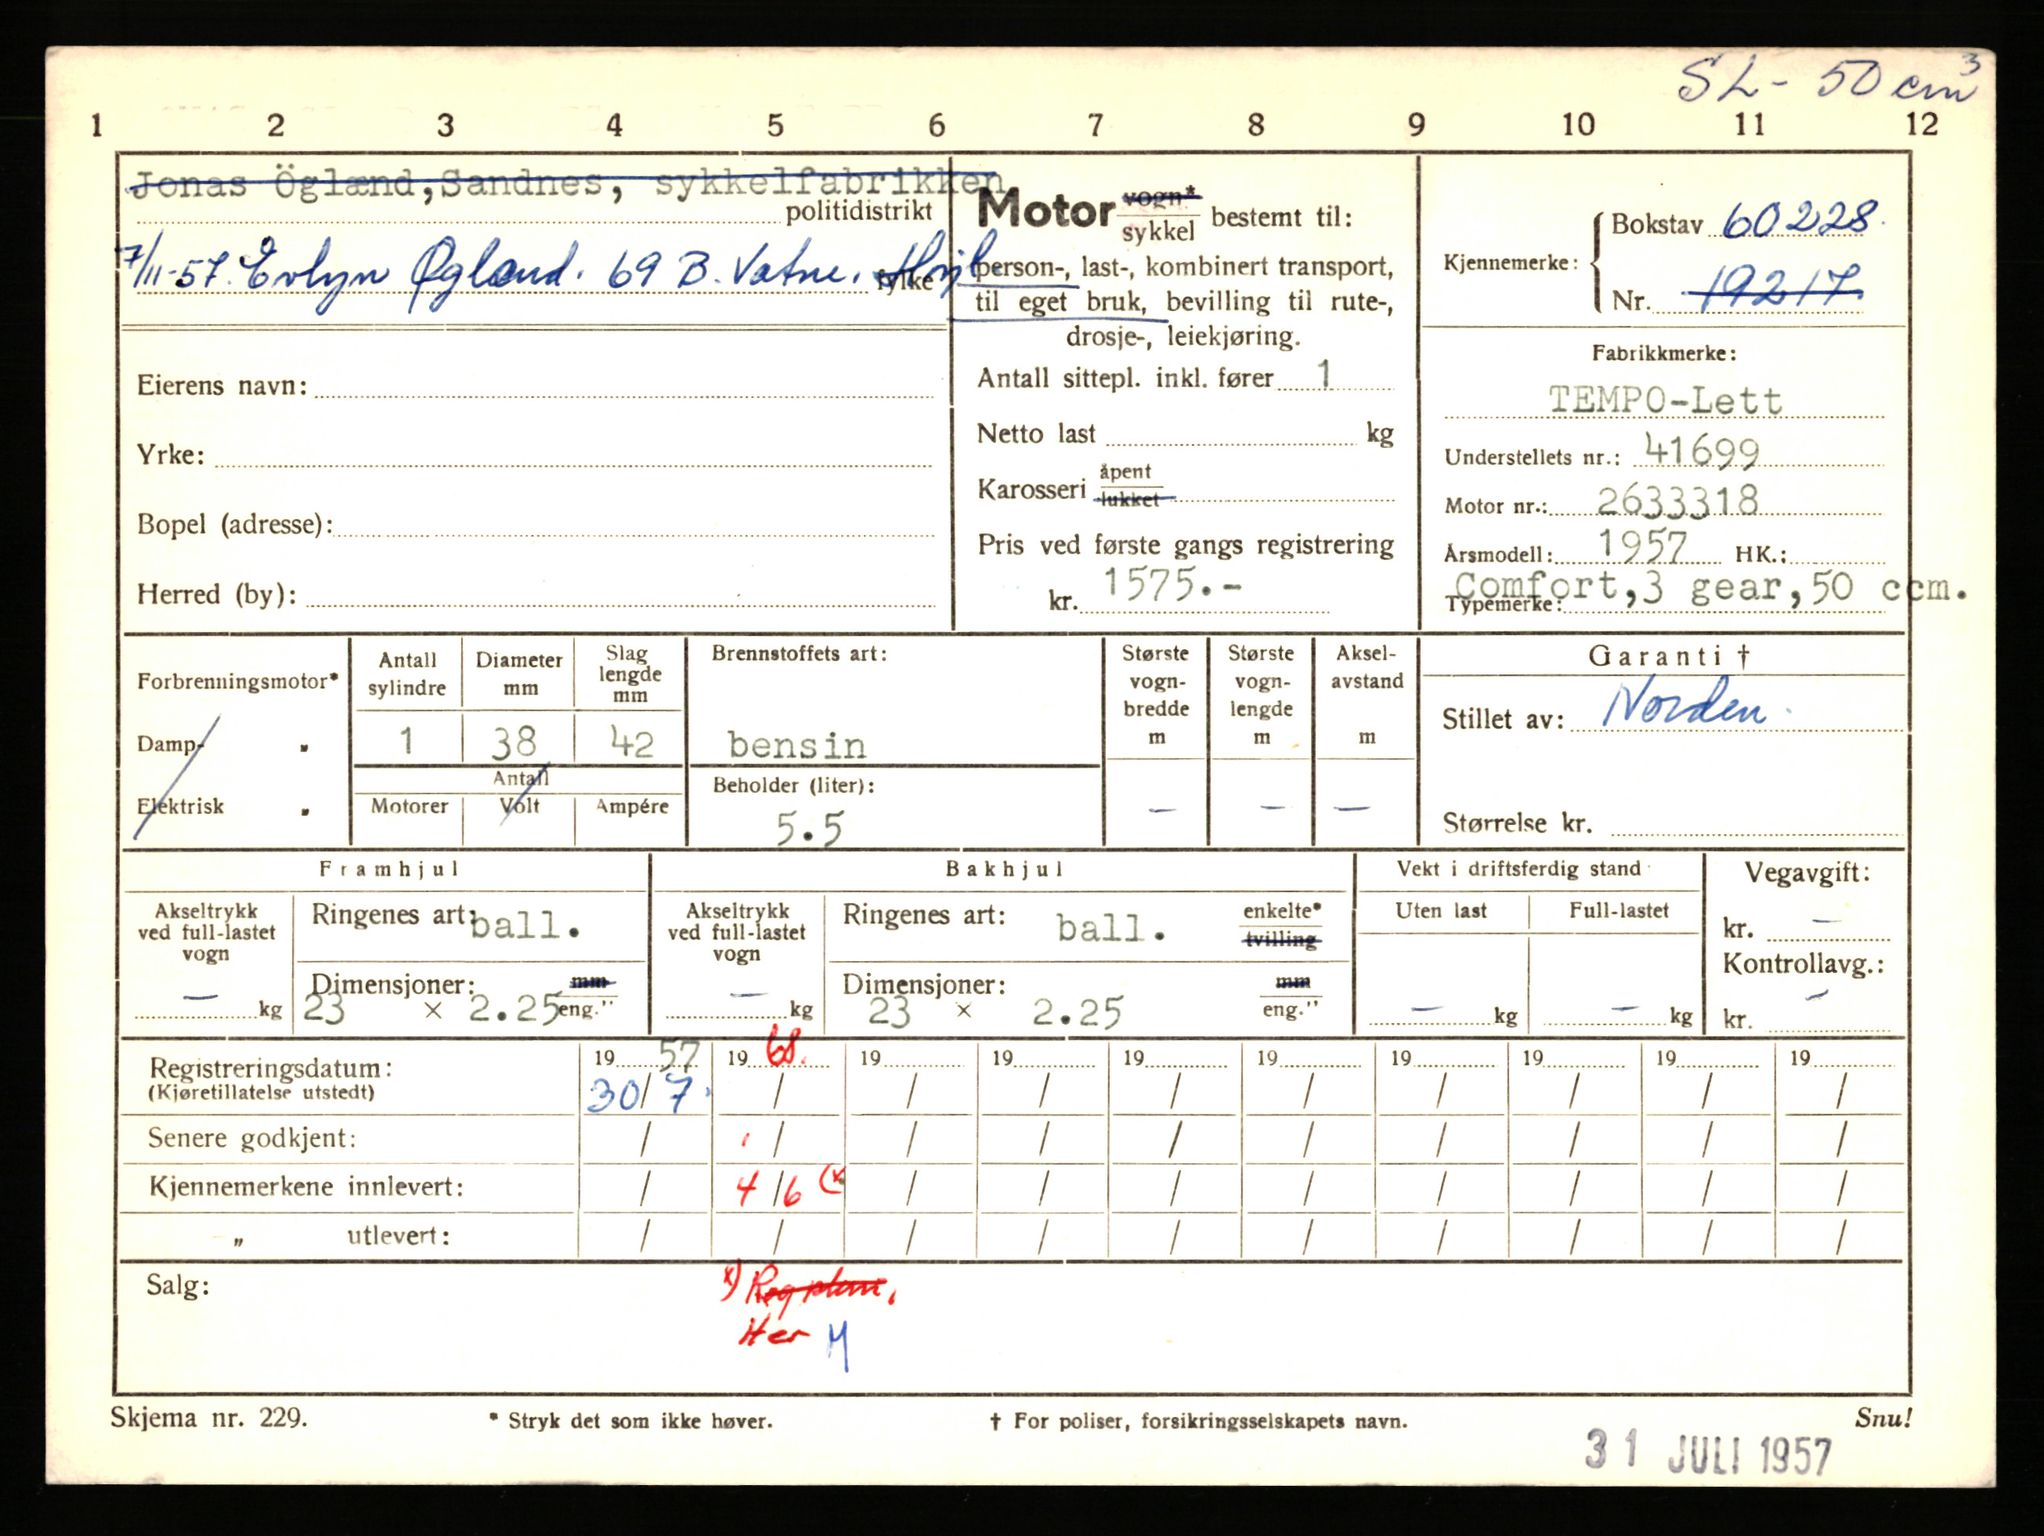 SL- 50 cm³
1 2 3 4 5 6 7 8 9 10 11 12
Jonas Öglænd, Sandnes, sykkelfabrikken
politidistrikt
7/11-57. Evlyn Øglænd. 69 B. Vatne.
fylke
Eierens navn:
Yrke:
Bopel (adresse):
Herred (by):
Motor vogn* / sykkel bestemt til:
person-, last-, kombinert transport,
til eget bruk, bevilling til rute-,
drosje-, leiekjøring.
Antall sittepl. inkl. fører 1
Netto last kg
Karosseri åpent / lukket
Pris ved første gangs registrering
kr. 1575.-
Kjennemerke: { Bokstav 60228.
Nr. 19217
Fabrikkmerke:
TEMPO-Lett
Understellets nr.: 41699
Motor nr.: 2633318
Årsmodell: 1957 HK.:
Comfort, 3 gear, 50 ccm.
Typemerke:
Forbrenningsmotor*
Damp- "
Elektrisk "
Antall sylindre
Diameter mm
Slag lengde mm
1 38 42
Antall
Motorer Volt Ampére
Brennstoffets art:
bensin
Beholder (liter):
5.5
Største vogn-bredde m
Største vogn-lengde m
Aksel-avstand m
— — —
Garanti †
Stillet av: Norden.
Størrelse kr.
Framhjul
Akseltrykk ved full-lastet vogn
— kg
Ringenes art: ball.
Dimensjoner: mm
23 × 2.25 eng."
Bakhjul
Akseltrykk ved full-lastet vogn
— kg
Ringenes art: ball. enkelte* / tvilling
Dimensjoner: mm
23 × 2.25 eng."
Vekt i driftsferdig stand
Uten last Full-lastet
— kg — kg
Vegavgift:
kr. —
Kontrollavg.:
kr. —
Registreringsdatum: 19 57 19 68. 19 19 19 19 19 19 19 19
(Kjøretillatelse utstedt) 30/7. / / / / / / / / /
Senere godkjent: / / / / / / / / / /
Kjennemerkene innlevert: / 4/6 (x / / / / / / / /
" utlevert: / / / / / / / / / /
Salg:
x) Reg
Her M
Skjema nr. 229.
* Stryk det som ikke høver.
† For poliser, forsikringsselskapets navn.
Snu!
31 JULI 1957